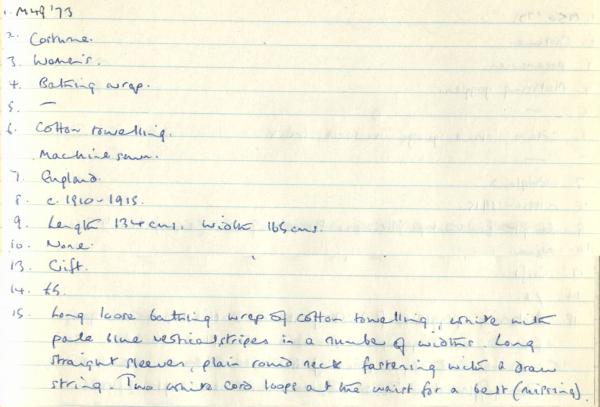 1. M49'73
2. Costume.
3. Women's.
4. Bathing wrap.
5. —
6. Cotton towelling.
Machine sewn.
7. England.
8. c. 1910-1915.
9. Length 134cms. Width 165cms.
10. None.
13. Gift.
14. £5.
15. Long loose bathing wrap of cotton towelling, white with
pale blue vertical stripes in a number of widths. Long
straight sleeves, plain round neck fastening with a draw
string. Two white cord loops at the waist for a belt (missing).